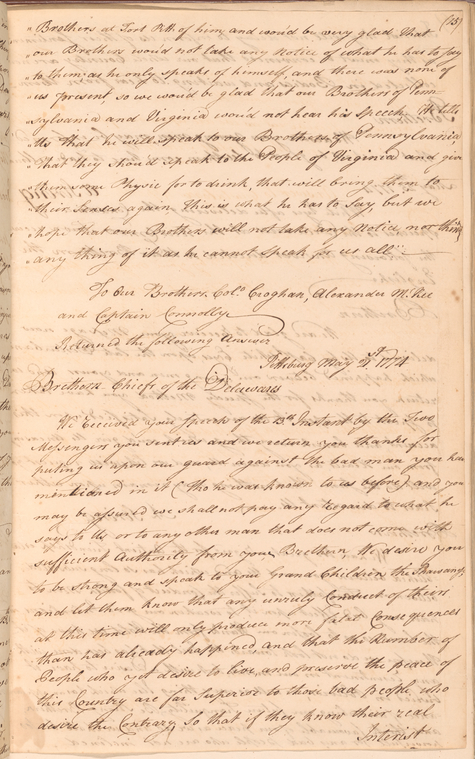 (15)
"Brothers at Fort Pitt of him, and would be very glad that
"our Brothers would not take any Notice of what he has to say
"to them, as he only speaks of himself, and there was none of
"us present, so we would be glad that our Brothers of Penn-
"sylvania and Virginia would not hear his Speech. He tells
"Us that he will speak to our Brothers of Pennsylvania
"that they should speak to the People of Virginia and give
"them some Physic for to drink, that will bring them to
"their Senses again. This is what he has to say, but we
"hope that our Brothers will not take any Notice nor think
"any thing of it as he cannot speak for us all"
To Our Brothers, Colo. Croghan, Alexander McKee
and Captain Connolly
Returned the following Answer
Pittsburg May 21st 1774
Brethern Chiefs of the Delewares
We received your speech of the 13th Instant by the Two
Messengers you sent us and we return you thanks for
puting us upon our guard against the bad man you have
mentioned in it (tho he was known to us before) and you
may be assured we shall not pay any regard to what he
says to Us or to any other man that does not come with
sufficient Authority from you, Brethern, We desire you
to be strong and speak to your Grand Children the Shawnese,
and let them know that any unruly Conduct of theirs
at this time will only produce more fatal Consequences
than has already happined and that the Number of
People who yet desire to live, and preserve the peace of
this Country are far Superior to those bad people who
desire the Contrary, So that if they know their real
Interest